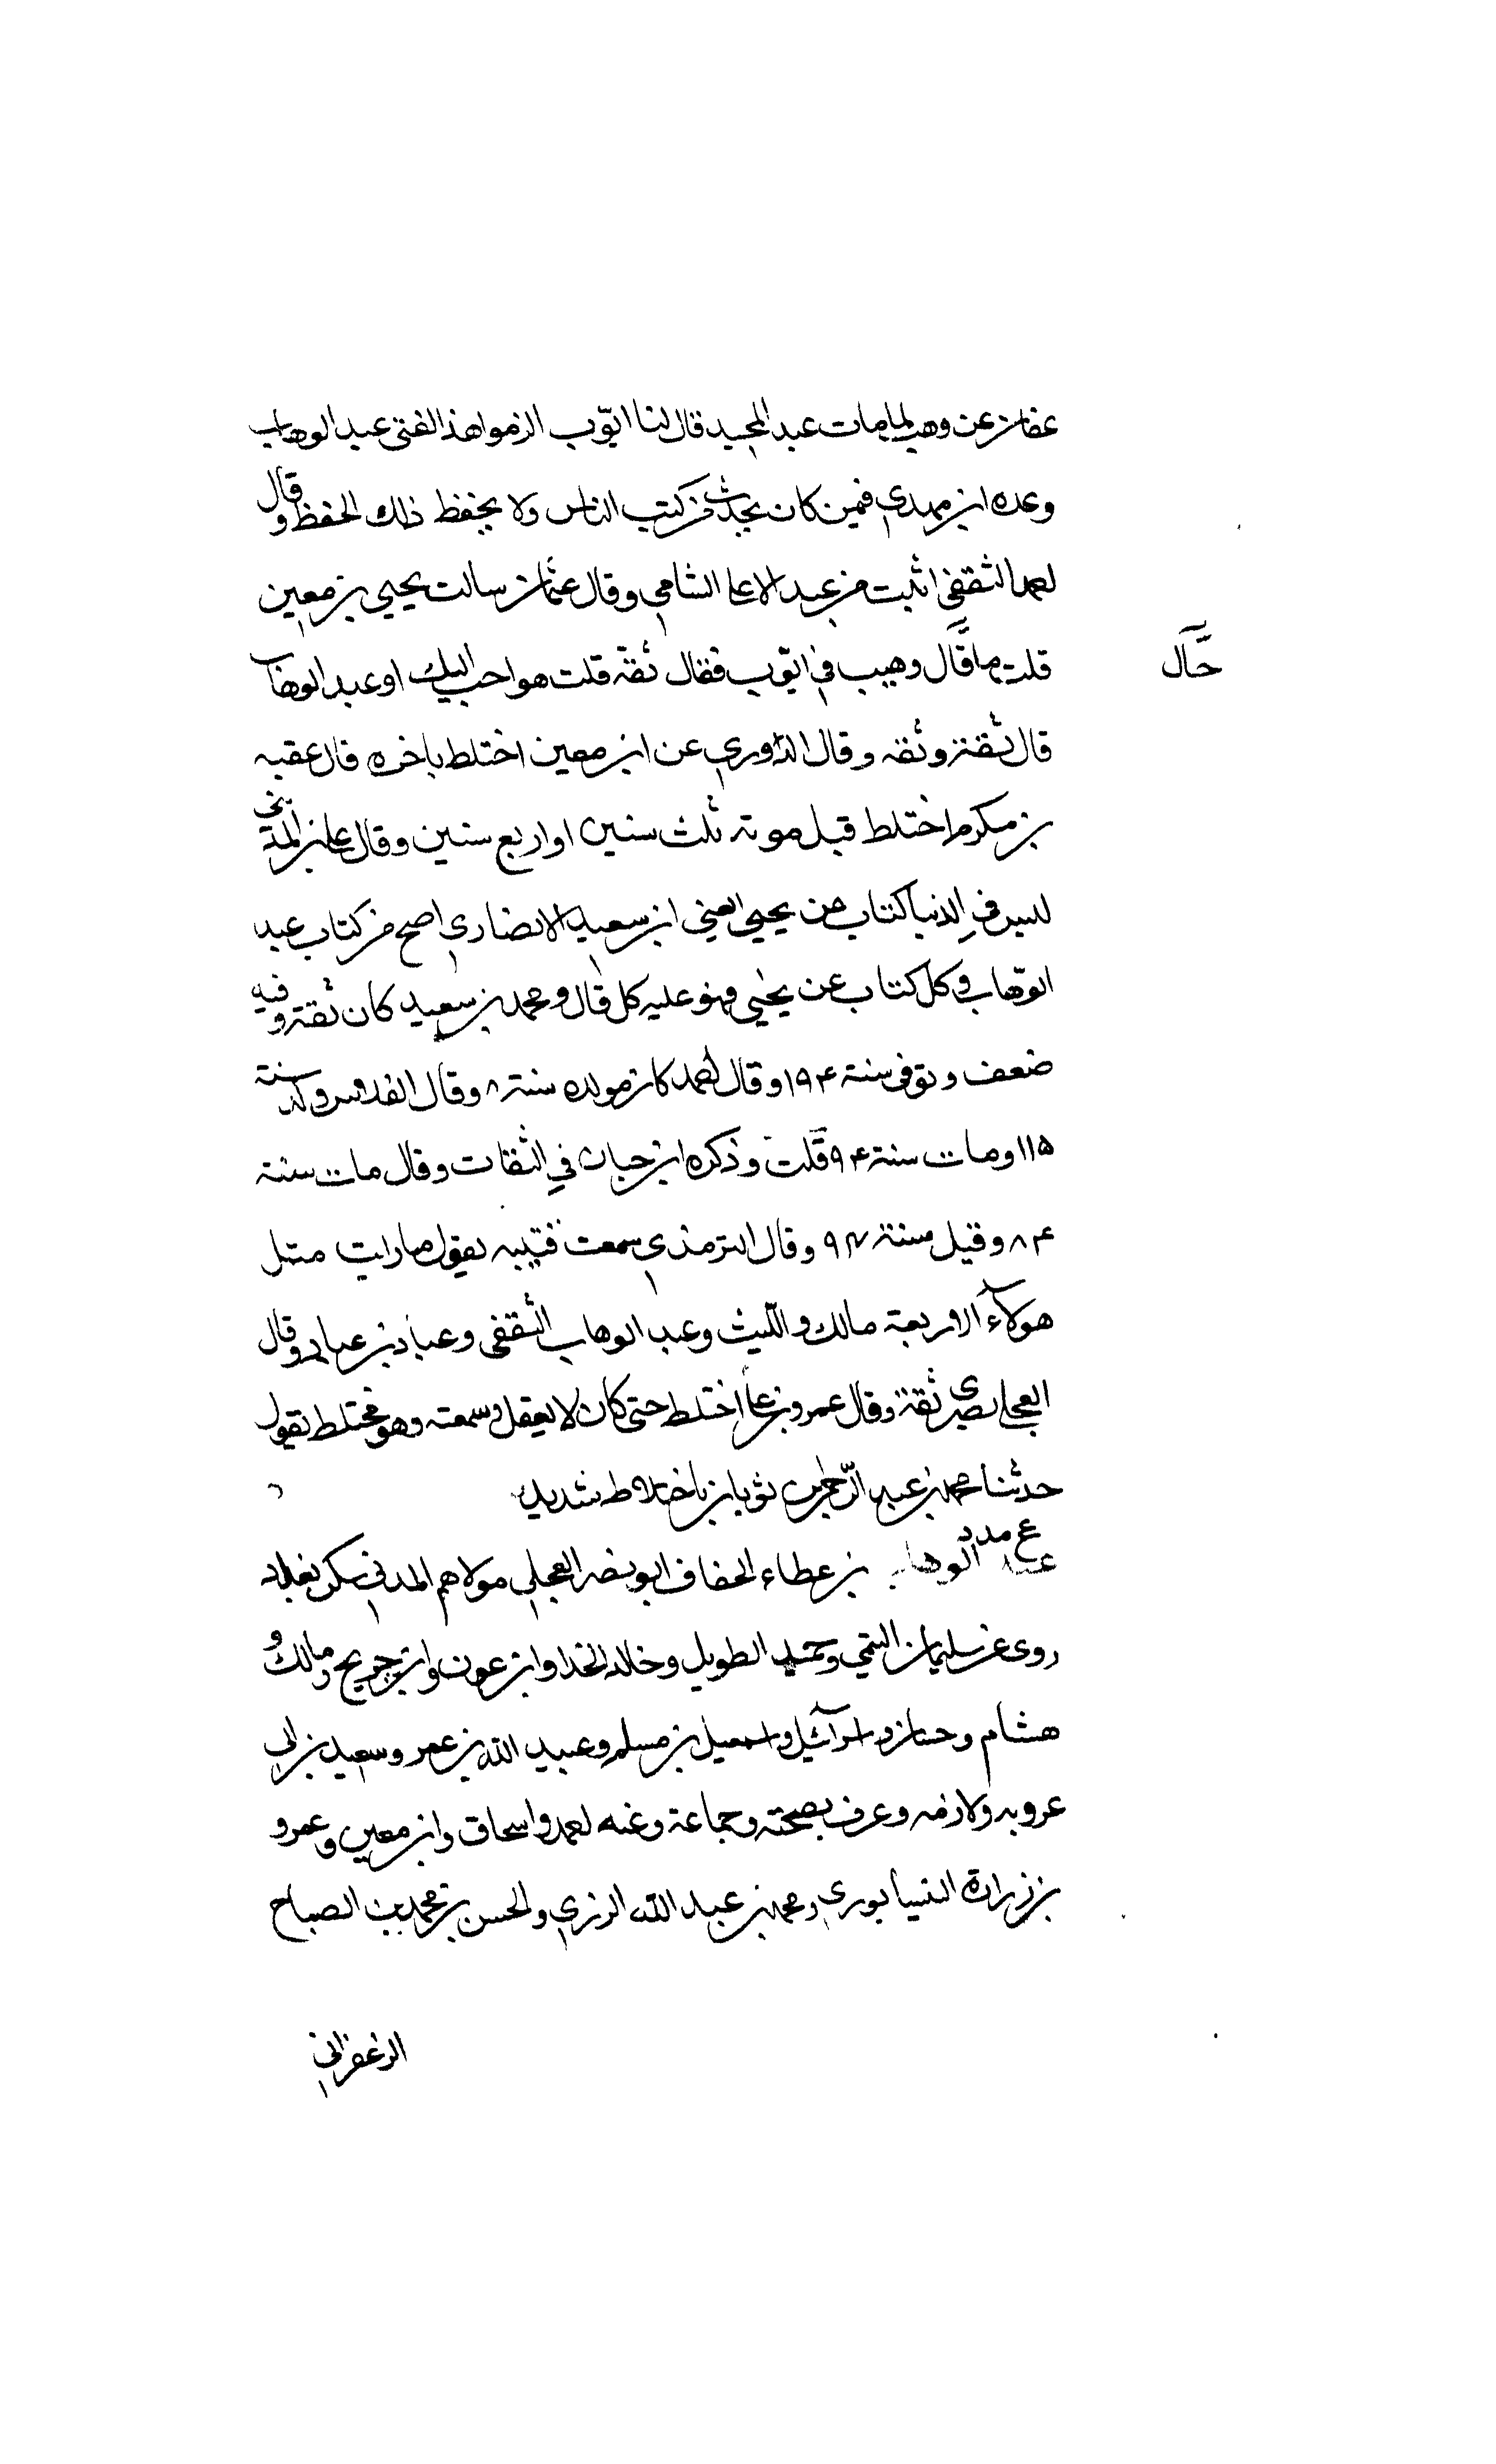 عفان عن وهيب لما مات عبد المجيد قال لنا ايّوب الزموا هذا الفتى عبد الوهاب
وعده ابن مهدي فيمن كان يحدث من كتب الناس ولا يحفظ ذلك الحفظ وقال
احمد الثقفي اثبت من عبد الاعلى الشامي وقال عثمان سالت يحيى بن معين
قلت ما قال وهيب في ايّوب فقال ثقة قلت هو احب اليك او عبد الوهاب
حال
قال ثقة وثقه وقال الدّوري عن ابن معين اختلط باخره قال عقبه
بن مكرم اختلط قبل موته ثلث سنين او اربع سنين وقال علي بن المديني
ليس في الدنيا كتاب عن يحيى يعني ابن سعيد الانصاري اصح من كتاب عبد
الوّهاب وكل كتاب عن يحيى فهو عليه كل قال ومحمد بن سعيد كان ثقة وفيه
ضعف وتوفى سنة ١٩۴ وقال احمد كان مولده سنة ٨ وقال الفلاس ولد سنة
١١۵ ومات سنة ٩۴ قلت وذكره ابن حبان في الثقات وقال مات سنة
٨۴ وقيل سنة ٩٤ وقال الترمذي سمعت قتيبه يقول ما رايت مثل
هولآء الاربعة مالك والليث وعبد الوهاب الثقفى وعباد بن عباد وقال
العجلي بصرى ثقة وقال عمرو بن علي اختلط حتى كان لا يعقل وسمعته وهو مختلط يقول
حدثنا محمد بن عبد الرّحمن بن ثوبان باختلاط شديد
ع مد عبد الوهاب بن عطاء الخفاف ابو نصر العجلي مولاهم المدني سكن بغداد
روى عن سليمان التيمي وحميد الطويل وخالد الحذا وابن عون وابن جريح ومالك و
هشام وحسان واسرآئيل واسمعيل بن مسلم وعبيد الله بن عمر وسعيد بن ابي
عروبه ولازمه وعرف بصحبته وجماعة وعنه احمد واسحاق وابن معين وعمرو
بن زرارة النيسابوري ومحمد بن عبد الله الرزي والحسن بن محمد بن الصباح
الزعفراني